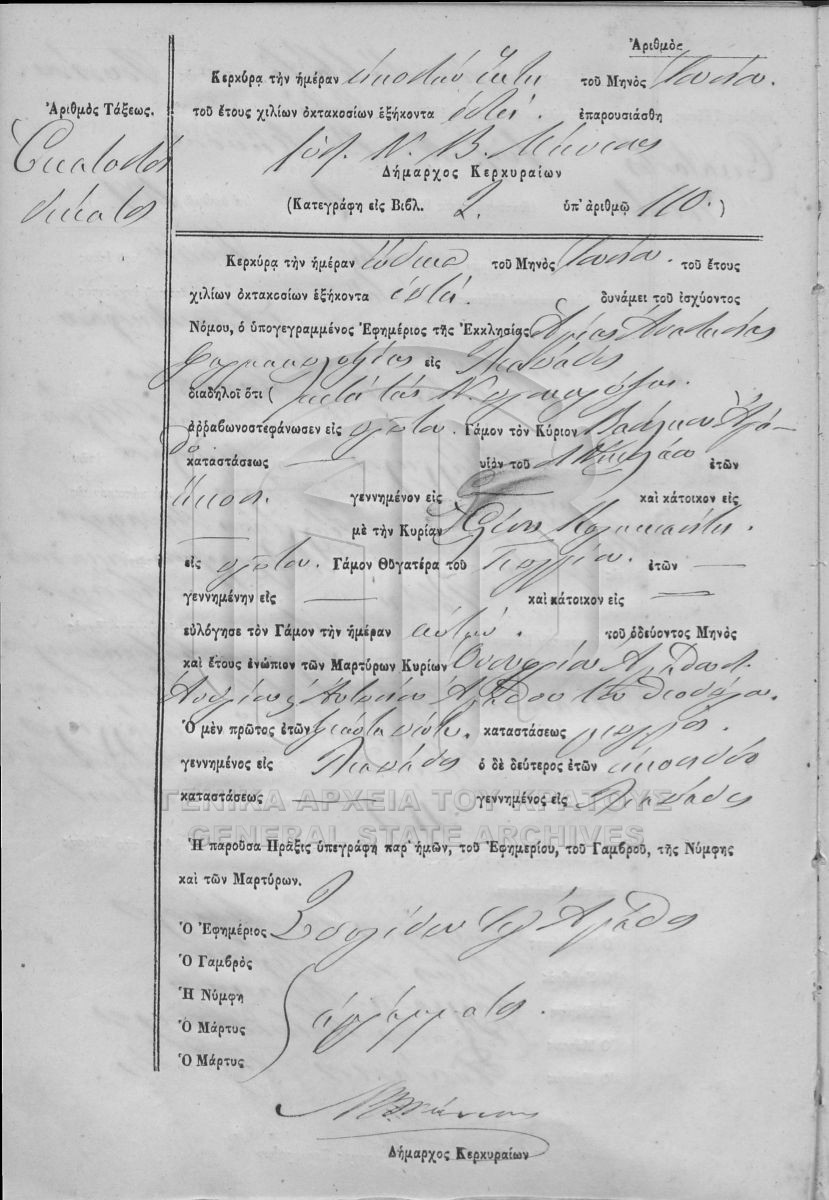 Ἀριθμὸς
Κερκύρα τὴν ἡμέραν εἰκοστὴν ἕκτην τοῦ Μηνὸς Ἰουνίου.
Ἀριθμὸς Τάξεως.
τοῦ ἔτους χιλίων ὀκτακοσίων ἑξήκοντα ἑπτά. ἐπαρουσιάσθη
Ἑκατοστὸς
δέκατος
Ν. Β. Μάνεσης
Δήμαρχος Κερκυραίων
(Κατεγράφη εἰς Βιβλ. 2. ὑπ' ἀριθμῷ 110.)
Κερκύρα τὴν ἡμέραν ἕνδεκα τοῦ Μηνὸς Ἰουνίου. τοῦ ἔτους
χιλίων ὀκτακοσίων ἑξήκοντα ἑπτά. δυνάμει τοῦ ἰσχύοντος
Νόμου, ὁ ὑπογεγραμμένος Ἐφημέριος τῆς Ἐκκλησίας Ἁγίας Ἀναστασίας
Φαρμακολυτρίας εἰς Λιαπάδες
διαδηλοῖ ὅτι (
ἀρραβωνοστεφάνωσεν εἰς πρῶτον. Γάμον τὸν Κύριον
καταστάσεως — υἱὸν τοῦ ἐτῶν
εἴκοσι. γεννημένον εἰς — καὶ κάτοικον εἰς
— μὲ τὴν Κυρίαν Ἑλένην
εἰς πρῶτον. Γάμον Θυγατέρα τοῦ Γεωργίου. ἐτῶν —
γεννημένην εἰς — καὶ κάτοικον εἰς —
εὐλόγησε τὸν Γάμον τὴν ἡμέραν αὐτήν. τοῦ ὁδεύοντος Μηνὸς
καὶ ἔτους ἐνώπιον τῶν Μαρτύρων Κυρίων
Ἀντωνίου τοῦ Θεοδώρου.
Ὁ μὲν πρῶτος ἐτῶν καταστάσεως γεωργός.
γεννημένος εἰς Λιαπάδες ὁ δὲ δεύτερος ἐτῶν
καταστάσεως — γεννημένος εἰς Λιαπάδες
ΓΕΝΙΚΑ ΑΡΧΕΙΑ ΤΟΥ ΚΡΑΤΟΥΣ
GENERAL STATE ARCHIVES
Ἡ παροῦσα Πρᾶξις ὑπεγράφη παρ' ἡμῶν, τοῦ Ἐφημερίου, τοῦ Γαμβροῦ, τῆς Νύμφης
καὶ τῶν Μαρτύρων.
Ὁ Ἐφημέριος
Ὁ Γαμβρὸς
Ἡ Νύμφη
ἀγράμματοι.
Ὁ Μάρτυς
Ὁ Μάρτυς
Δήμαρχος Κερκυραίων